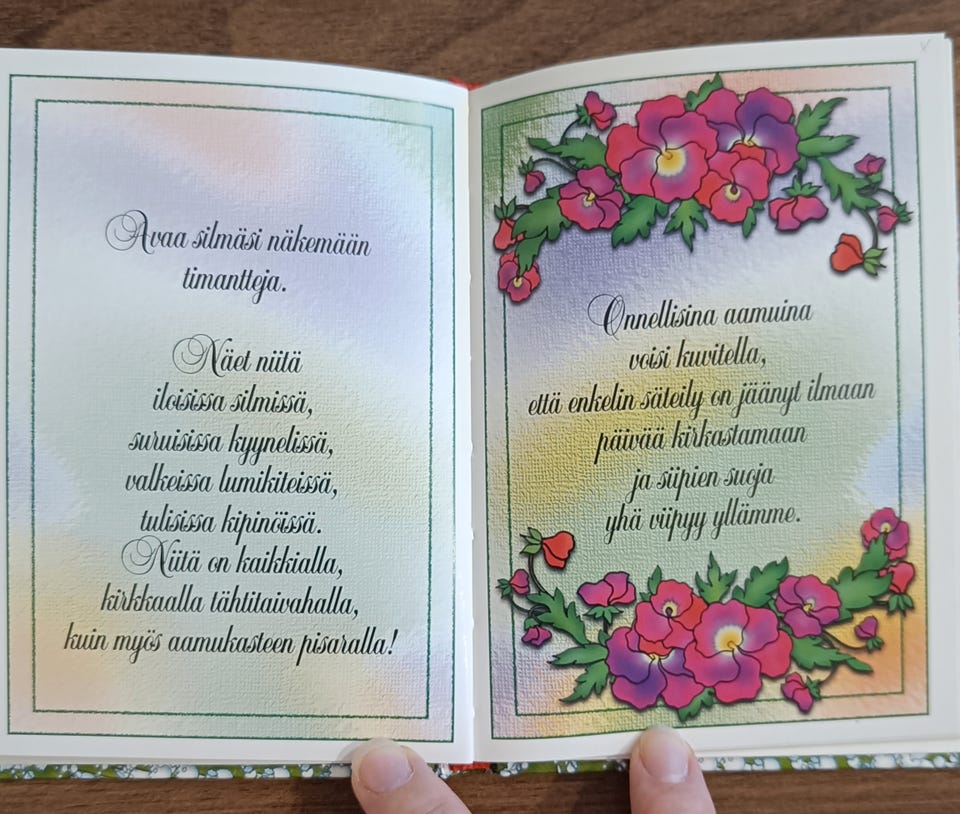 Avaa silmäsi näkemään
timantteja.
Näet niitä
iloisissa silmissä,
suruisissa kyynelissä,
valkeissa lumikiteissä,
tulisissa kipinöissä.
Niitä on kaikkialla,
kirkkaalla tähtitaivahalla,
kuin myös aamukasteen pisaralla!
Onnellisina aamuina
voisi kuvitella,
että enkelin säteily on jäänyt ilmaan
päivää kirkastamaan
ja siipien suoja
yhä viipyy yllämme.